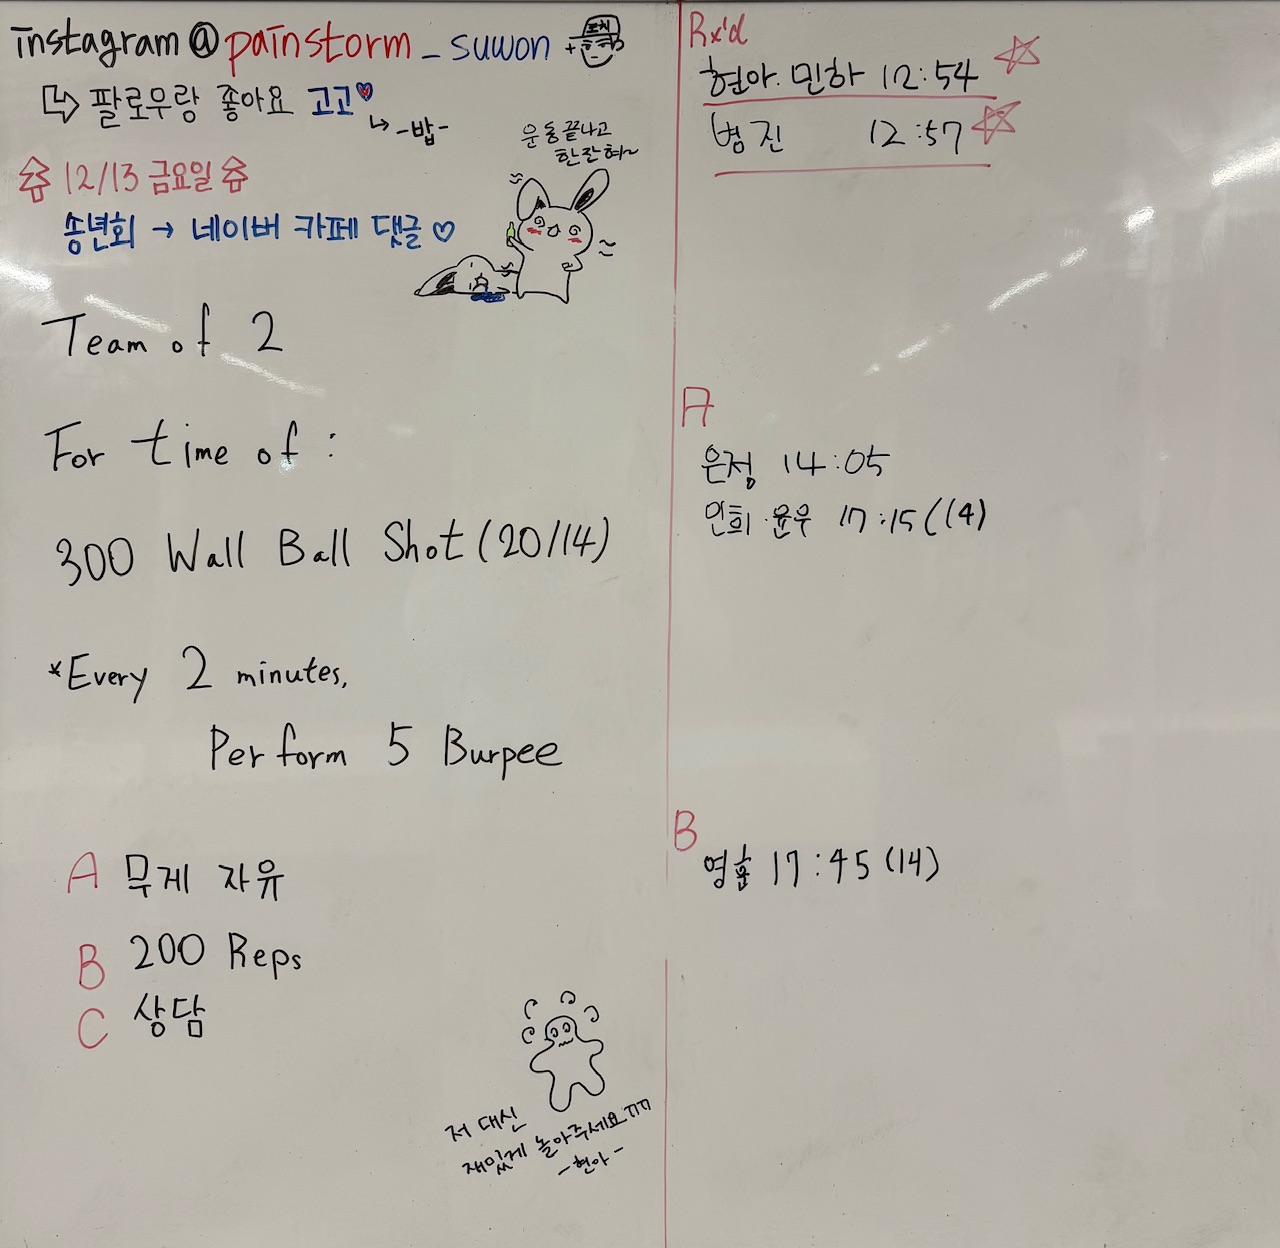 instagram@painstorm_suwon
팔로우랑 좋아요 고고
-밥-
운동끝나고
한잔혀~
12/13 금요일
송년회 → 네이버 카페 댓글 ♡
Team of 2
For time of :
300 Wall Ball Shot (20/14)
*Every 2 minutes,
Perform 5 Burpee
A 무게 자유
B 200 Reps
C 상담
저 대신
재밌게 놀아주세요ㅠㅠ
-현아-
Rx'd
현아. 민하 12:54
병진 12:57
A
은정 14:05
인희.윤우 17:15 (14)
B
영훈 17:45 (14)